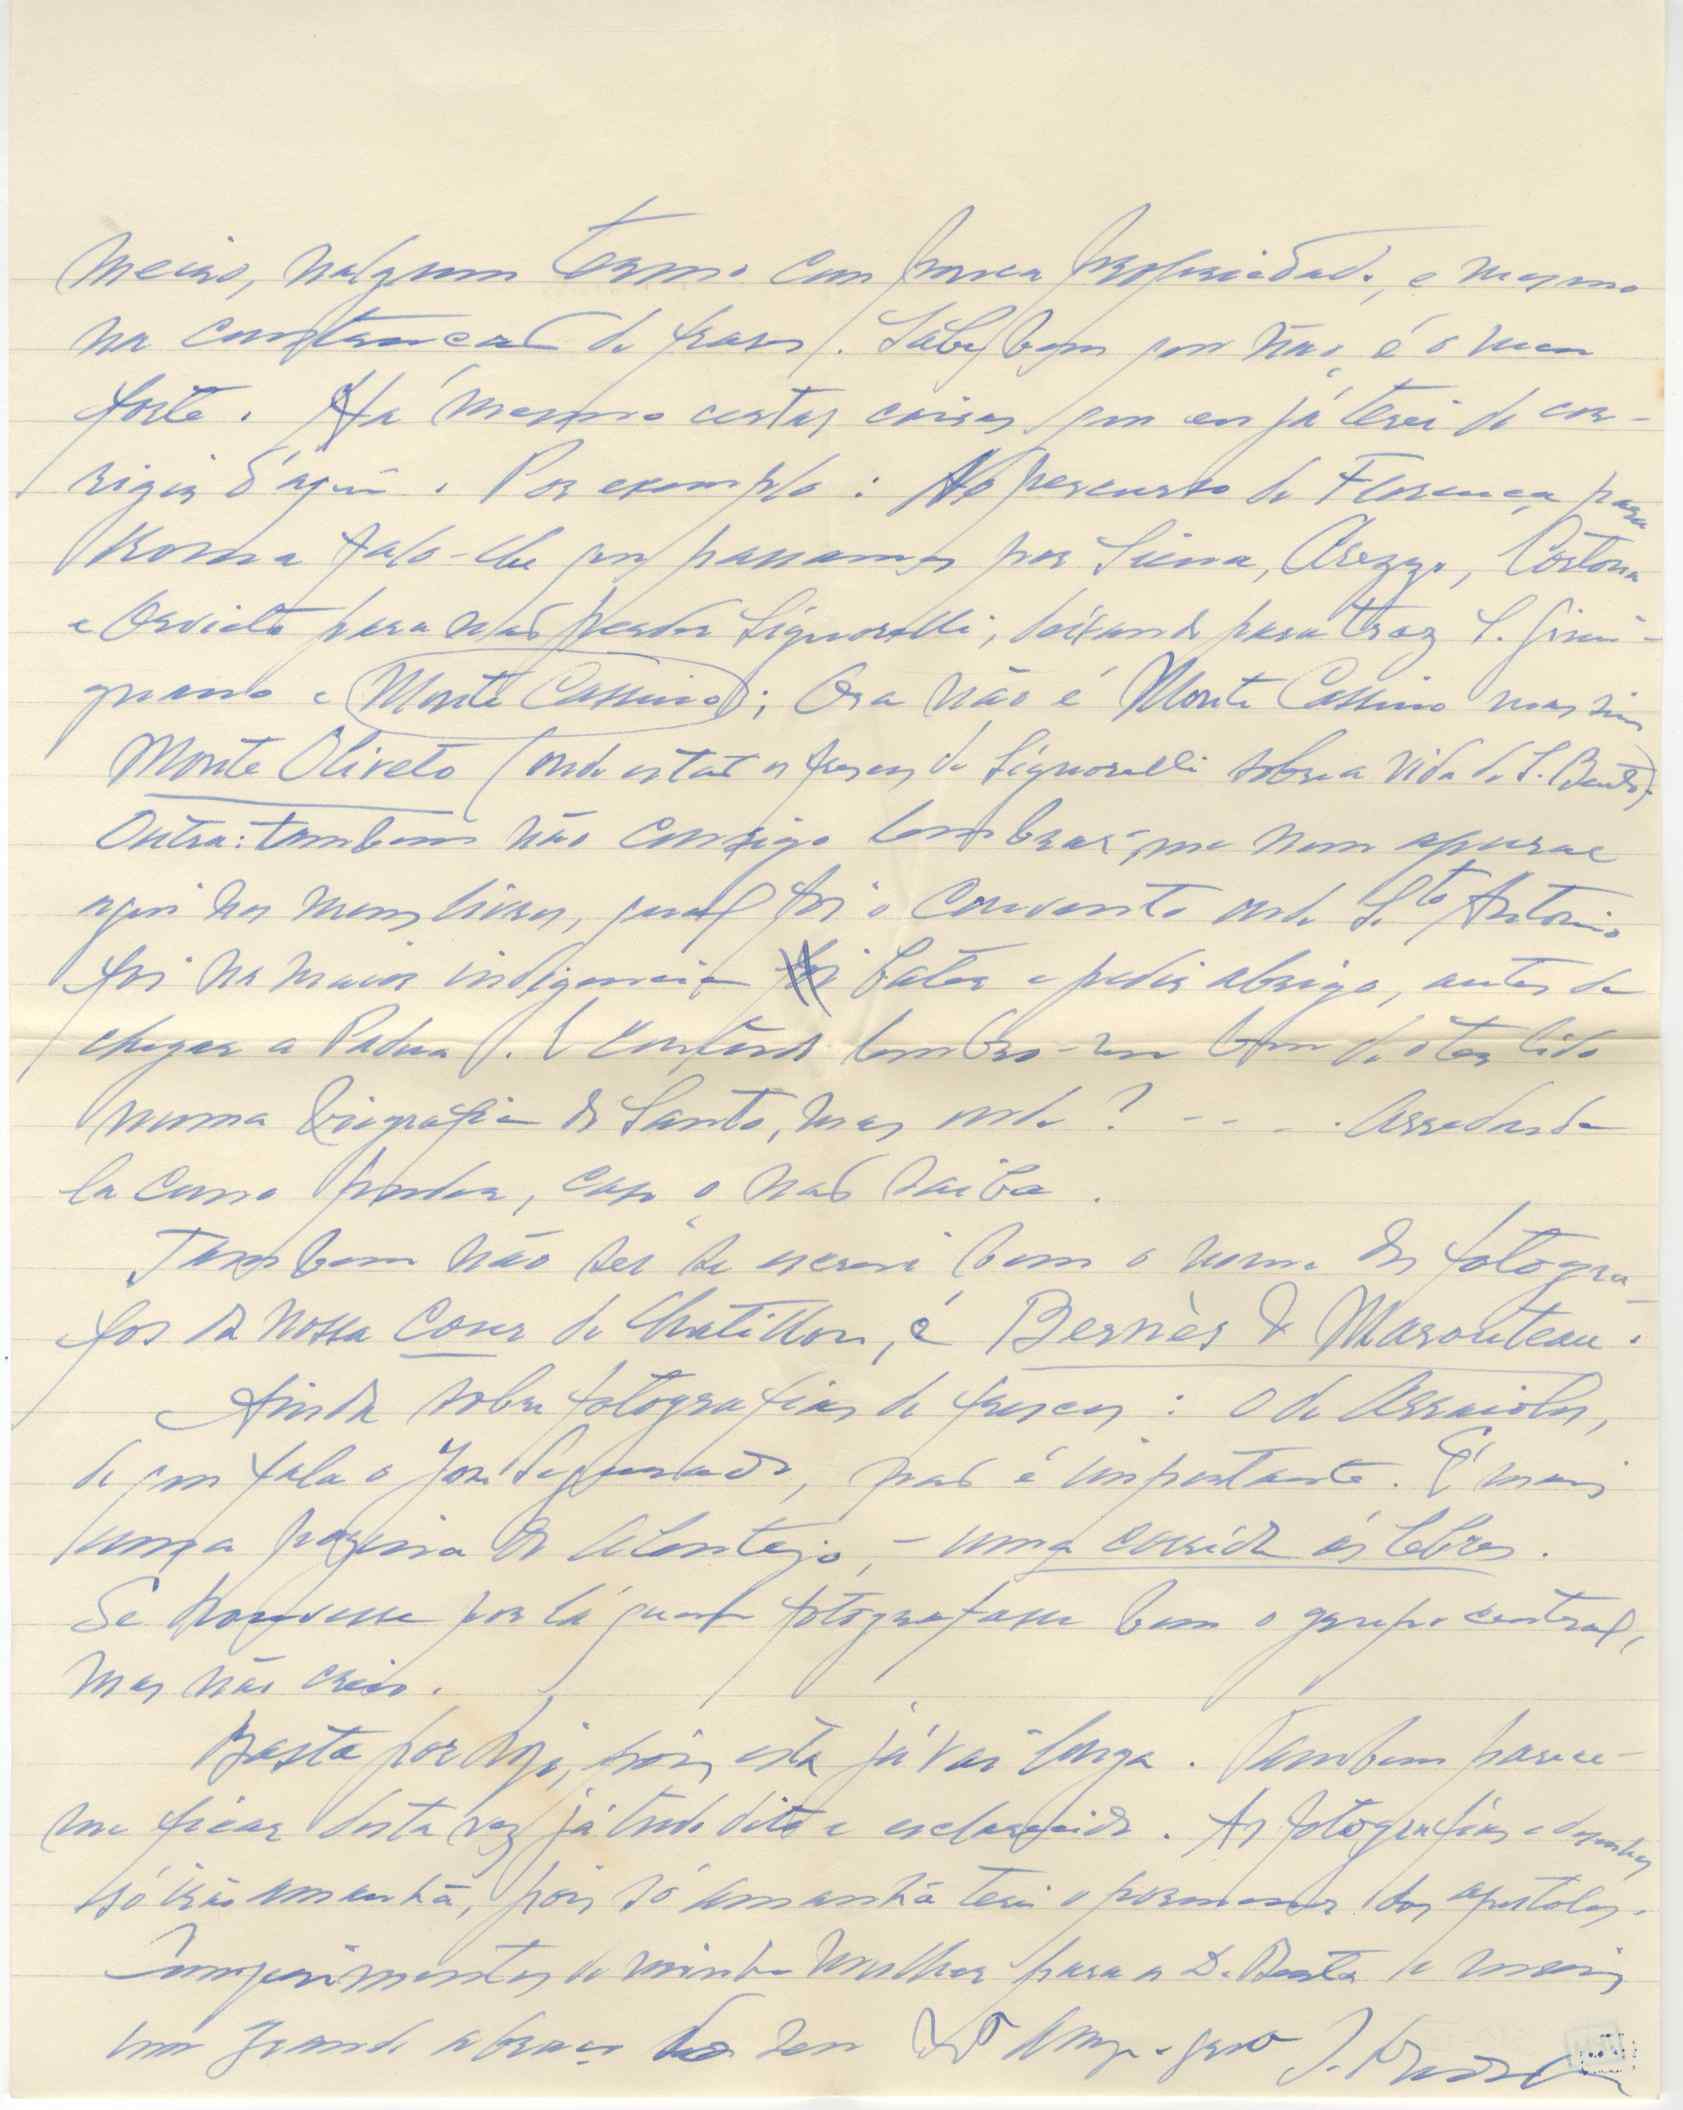 meiro, nalgum termo com pouca propriedade, e mesmo
na constancia de frases. Sabe bem que não é o meu
forte. Há mesmo certas coisas que eu já terei de cor-
rigir d'aqui. Por exemplo: No percurso de Florença para
Roma falo-lhe que passamos por Siena, Arezzo, Cortona
e Orvieto para não perder Signorelli, deixando para traz S. Gimi-
gnano e Monte Cassino; Ora não é Monte Cassino mas sim
Monte Oliveto (onde estão os frescos de Signorelli sobre a vida de S. Bento).
Outra: tambem não consigo lembrar-me nem apurar
aqui nos meus livros, qual foi o convento onde S.to Antonio
foi na maior indigencia bater e pedir abrigo, antes de
chegar a Padua. E contudo lembro-me bem de o ter lido
numa biografia do Santo, mas onde? - - - . Arredonde
la como puder, caso o não saiba.
Tambem não sei se escrevi bem o nome dos fotogra-
fos da nossa cour de Chatillon, é Bernès & Marouteau.
Ainda sobre fotografias de frescos: O de Arraiolos,
de que fala o José Segurado, não é importante. É mais
uma pagina do Alentejo, - uma corrida ás lebres.
Se houvesse por lá quem fotografasse bem o grupo central,
mas não creio.
Basta por hoje, pois esta já vai longa. Tambem parece-
me ficar desta vez já tudo dito e esclarecido. As fotografias e desenhos
só irão amanhã, pois só amanhã terei o pormenor dos apostolos.
Cumprimentos de minha mulher para a D. Berta e mais
um grande abraço do seu am.º e grato J.